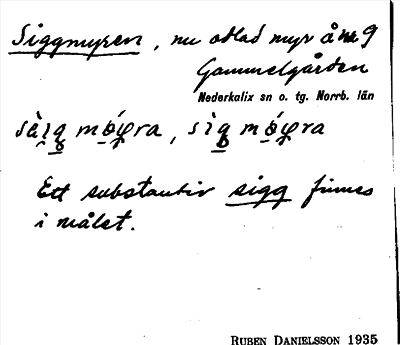 Siggmyren, nu odlad myr å nr 9
Gammelgården
Nederkalix sn o. tg. Norrb. län
Ett substantiv sigg finnes
i målet.
RUBEN DANIELSSON 1935